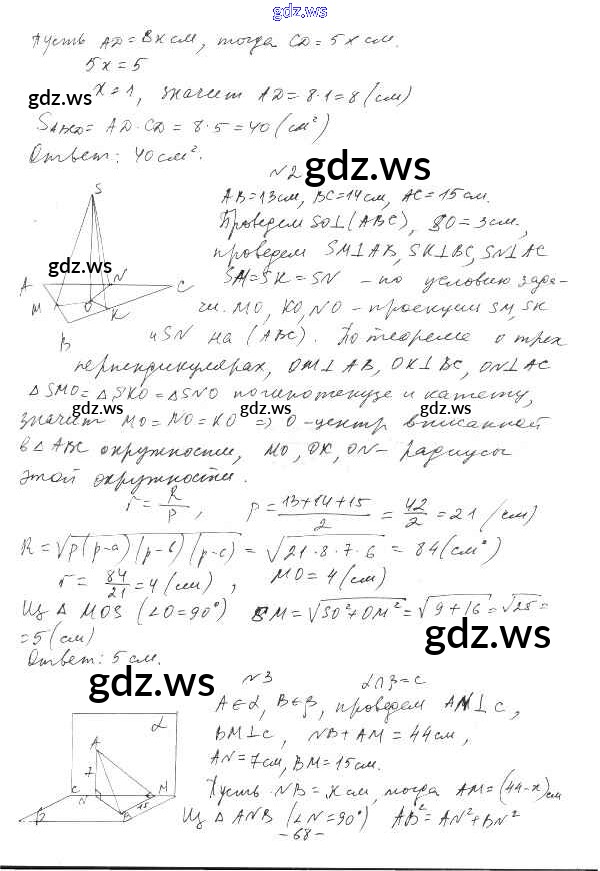 gdz.ws
Пусть AD = 8x см, тогда CD = 5x см.
5x = 5
gdz.ws x = 1, значит AD = 8·1 = 8 (см)
gdz.ws
S_ABCD = AD·CD = 8·5 = 40 (см²)
Ответ: 40 см².
gdz.ws
№2
S
AB = 13 см, BC = 14 см, AC = 15 см.
Проведем SO⊥(ABC), SO = 3 см,
проведем SM⊥AB, SK⊥BC, SN⊥AC
gdz.ws gdz.ws
A N C
M O K
B
SM = SK = SN – по условию зада-
чи. MO, KO, NO – проекции SM, SK
и SN на (ABC). По теореме о трех
перпендикулярах, OM⊥AB, OK⊥BC, ON⊥AC
△SMO = △SKO = △SNO по гипотенузе и катету,
gdz.ws gdz.ws gdz.ws
значит MO = NO = KO ⇒ O – центр вписанной
в △ABC окружности, MO, OK, ON – радиусы
этой окружности.
r = R/p, p = (13+14+15)/2 = 42/2 = 21 (см)
gdz.ws gdz.ws
R = √(p(p-a)(p-b)(p-c)) = √(21·8·7·6) = 84 (см²)
r = 84/21 = 4 (см), MO = 4 (см)
gdz.ws gdz.ws
Из △MOS (∠O = 90°) SM = √(SO²+OM²) = √(9+16) = √25 =
= 5 (см)
gdz.ws
Ответ: 5 см.
gdz.ws gdz.ws
№3 α∩β = c
A∈α, B∈β, проведем AN⊥c,
BM⊥c, NB + AM = 44 см,
AN = 7 см, BM = 15 см.
α
A
7
C N M
β B 15
Пусть NB = x см, тогда AM = (44-x) см
gdz.ws gdz.ws
Из △ANB (∠N = 90°) AB² = AN² + BN²
-68-
gdz.ws